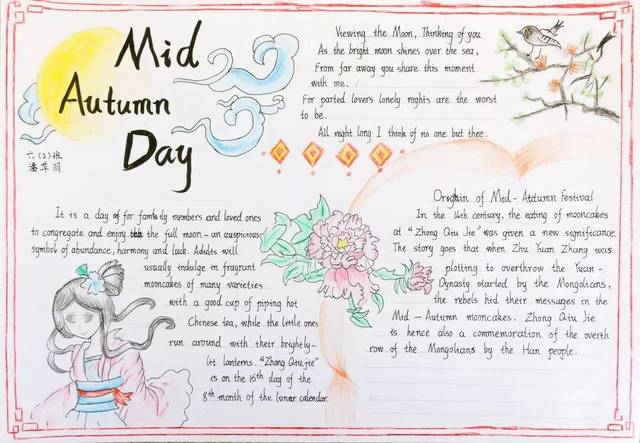 Mid
Autumn
Day
六(2)班
Viewing the Moon, Thinking of you
As the bright moon shines over the sea,
From far away you share this moment
with me.
For parted lovers lonely nights are the worst
to be.
All night long I think of no one but thee.
It is a day of for family members and loved ones
to congregate and enjoy the full moon - an auspicious
symbol of abundance, harmony and luck. Adults will
usually indulge in fragrant
mooncakes of many varieties
with a good cup of piping hot
Chinese tea, while the little ones
run around with their brightly-
lit lanterns. "Zhong Qiu jie"
is on the 15th day of the
8th month of the lunar calendar.
Origin of Mid-Autumn Festival
In the 14th century, the eating of mooncakes
at "Zhong Qiu Jie" was given a new significance.
The story goes that when Zhu Yuan Zhang was
plotting to overthrow the Yuan -
Dynasty started by the Mongolians,
the rebels hid their messages in the
Mid - Autumn mooncakes. Zhong Qiu Jie
is hence also a commemoration of the overth
row of the Mongolians by the Han people.